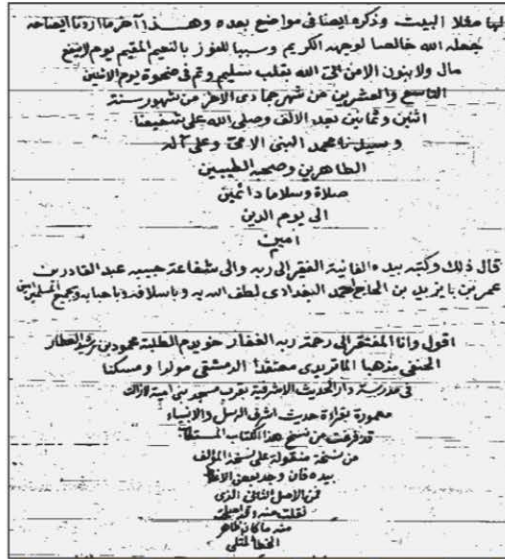 لها مثلا البيت وذكره ايضا في مواضع بعده وهذا آخر ما اردنا ايضاحه
جعله الله خالصا لوجهه الكريم وسببا للفوز بالنعيم المقيم يوم لا ينفع
مال ولا بنون الا من اتى الله بقلب سليم وتم في ضحوة يوم الاثنين
التاسع والعشرين من شهر جمادى الآخر من شهور سنة
اثنين وثمانين بعد الالف وصلى الله على شفيعنا
وسيدنا محمد النبي الامي وعلى آله
الطاهرين وصحبه الطيبين
صلاة وسلاما دائمين
الى يوم الدين
امين
قال ذلك وكتبه بيده الفانية الفقير الى ربه والى شفاعة حبيبه عبد القادر بن
عمر بن بايزيد بن الحاج احمد البغدادى لطف الله به وباسلافه وباحبابه وبجميع المسلمين
اقول وانا المفتقر الى رحمة ربه الغفار خويدم الطلبة محمود بن العطار
الحنفى مذهبا الماتريدى معتقدا الدمشقى مولدا ومسكنا
فى مدرسة دار الحديث الاشرفية بقرب مسجد بنى امية لازالت
معمورة بقراءة حديث اشرف الرسل والانبياء
قد فرغت من نسخ هذا الكتاب المستطاب
من نسخة منقولة على نسخة المؤلف
بيده فان وجد بعض
فمن الاصل الثانى الذى
نقلت منه
منه ما كان ظاهر
الخطأ